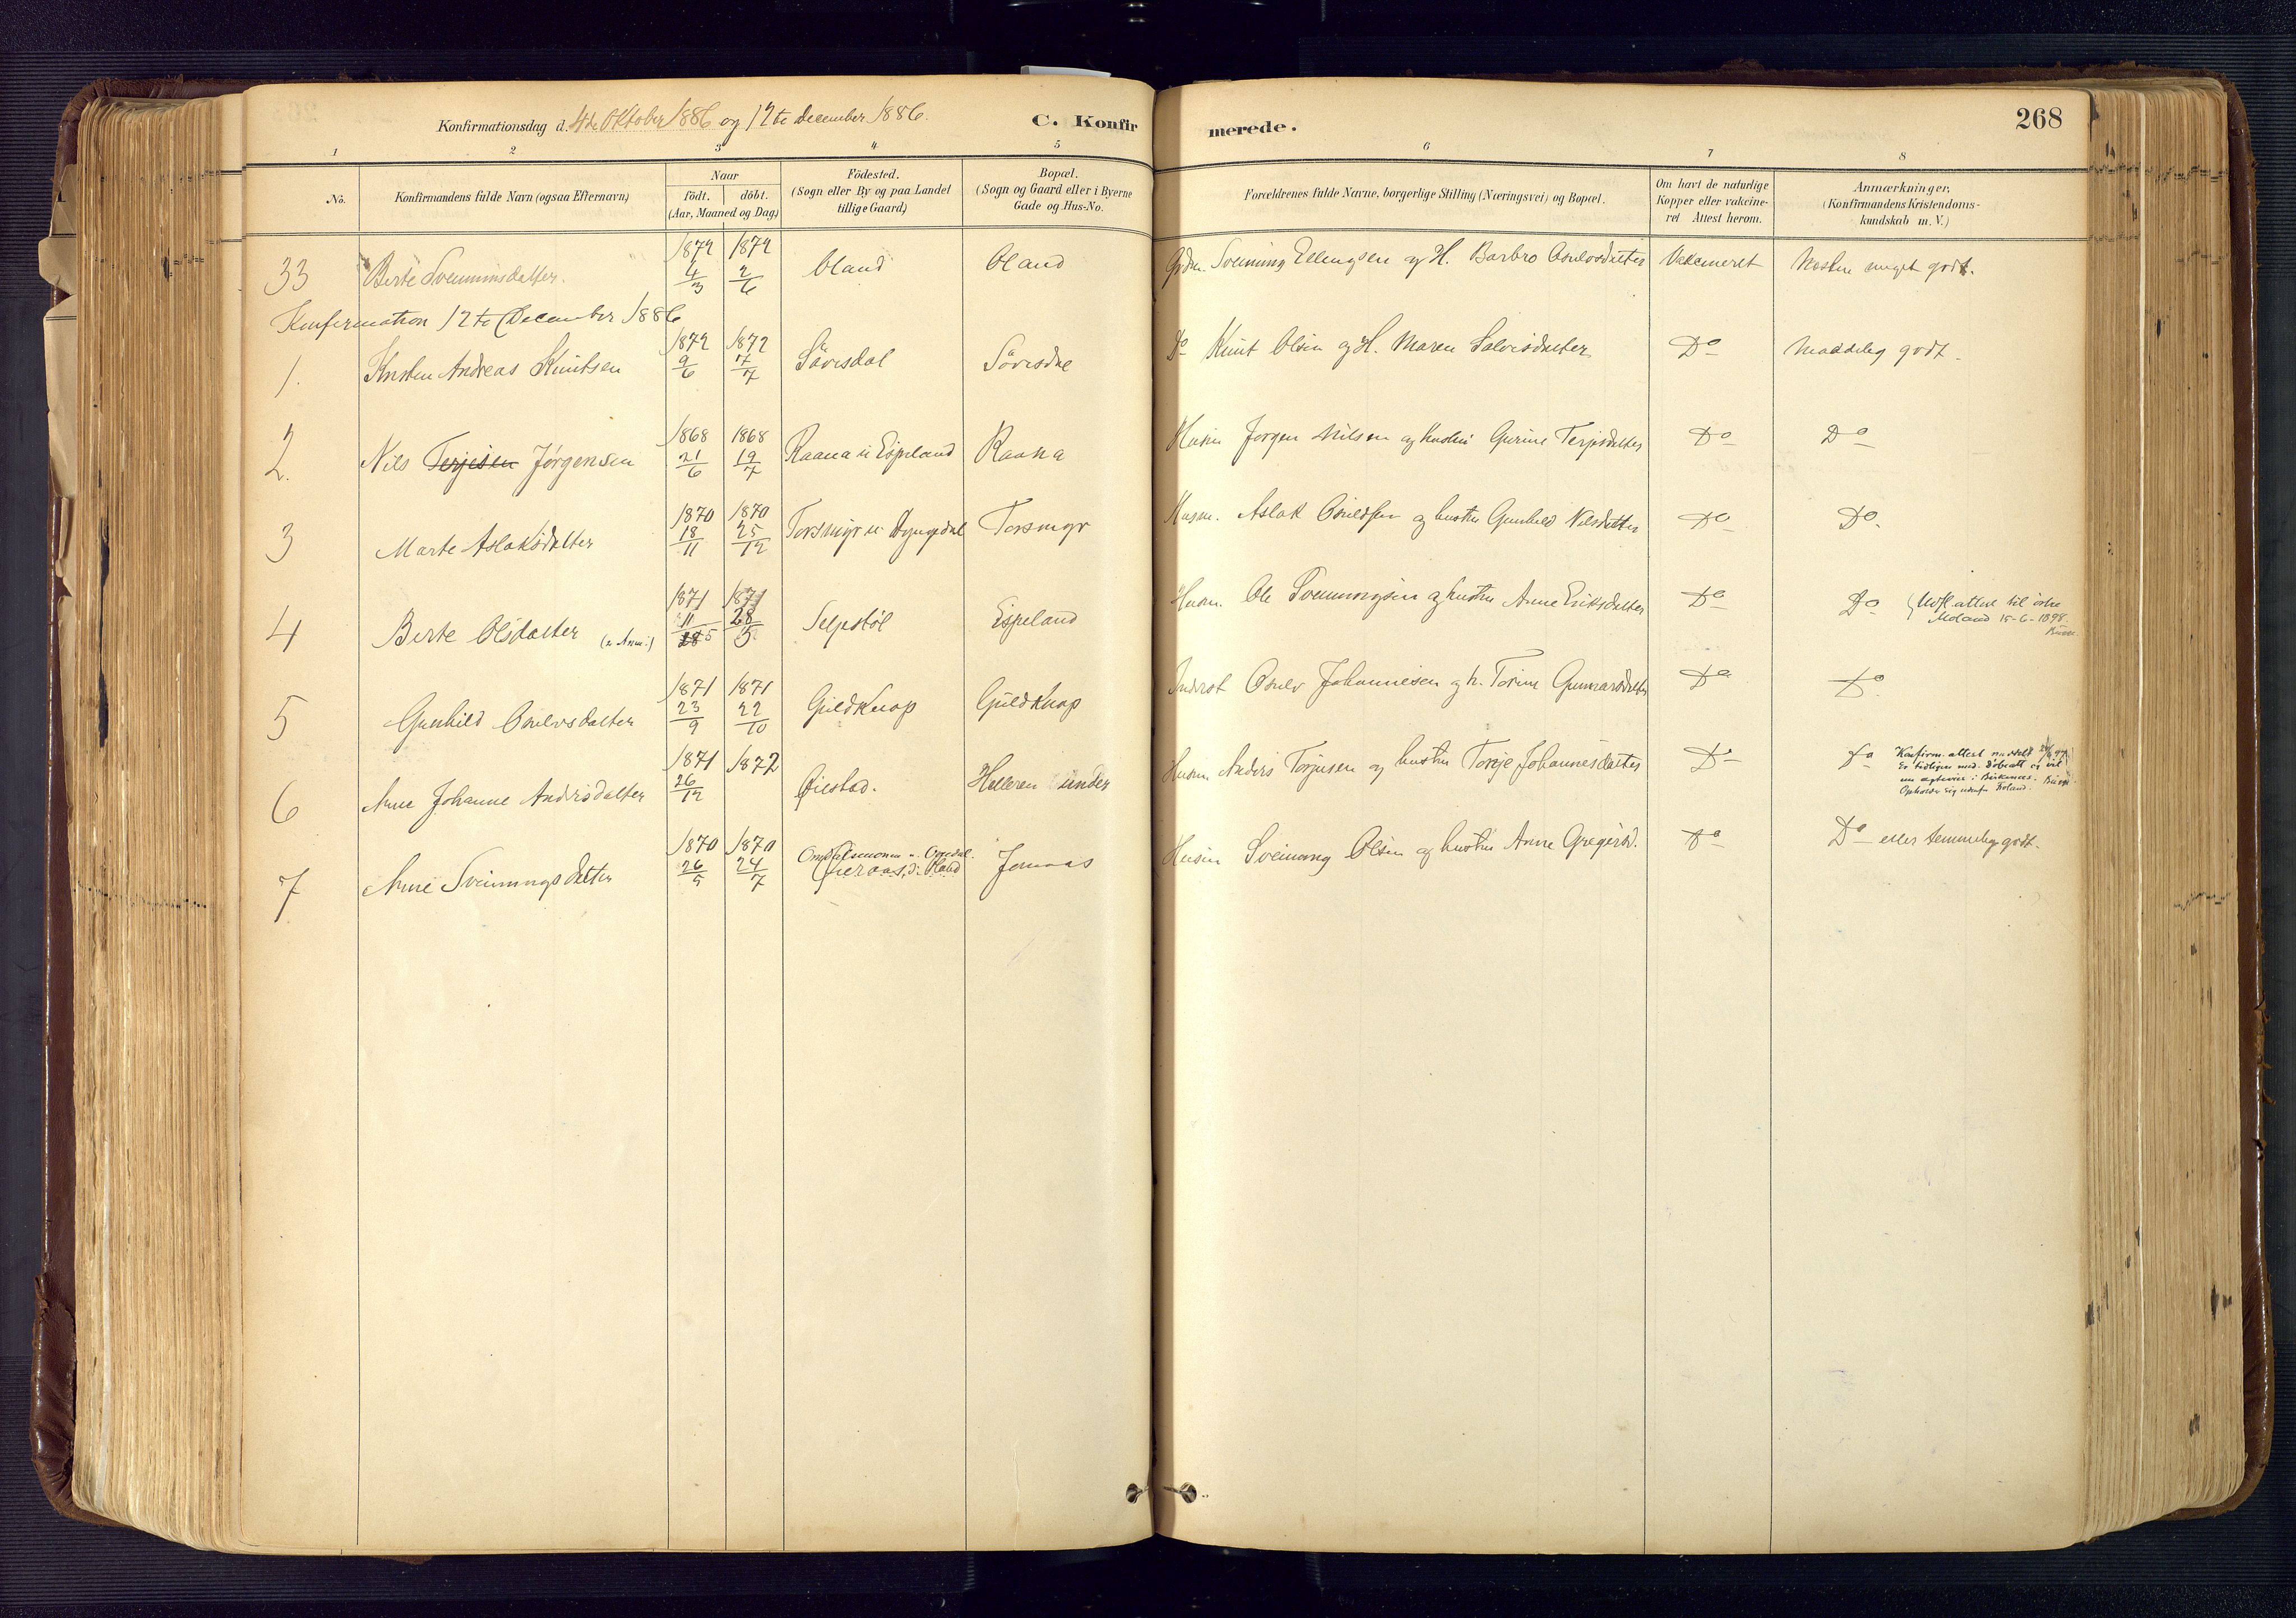 Konfirmationsdag d. 4de Oktober 1886 og 12te December 1886.
C. Konfirmerede.
268
1 2 3 4 5 6 7 8
No.
Konfirmandens fulde Navn (ogsaa Efternavn)
Naar
født. døbt.
(Aar, Maaned og Dag)
Födested.
(Sogn eller By og paa Landet
tillige Gaard)
Bopæl.
(Sogn og Gaard eller i Byerne
Gade og Hus-No.
Forældrenes fulde Navne, borgerlige Stilling (Næringsvei) og Bopæl.
Om havt de naturlige
Kopper eller vakcine-
ret Attest herom.
Anmærkninger,
(Konfirmandens Kristendoms-
kundskab m. V.)
33 Berte Sveinunsdatter. 1872 4/3 1872 2/6 Oland Oland Grdm. Sveinung Ellingsen og H. Barbro Osulvsdatter Vakcineret Næsten meget godt.
Konfirmation 12te December 1886
1. Kristen Andreas Knutsen 1872 9/6 1872 7/7 Såvisdal Såvisdal Do Knut Olsen og H. Maren Salvisdatter Do Maadelig godt.
2. Nils Terjesen Jørgensen 1868 21/6 1868 19/7 Raana u Espeland Raana Husm Jørgen Nilsen og hustru Gurine Terjesdatter Do Do
3 Marte Aslaksdatter 1870 18/11 1870 25/12 Torsmyr u Torsmyr Husm. Aslak Osuldsen og hustru Gunhild Nilsdatter Do Do.
4 Berte Olsdatter (se Anm.) 1871 11/5 1871 28/5 Selpstøl Espeland Husm. Ole Sveinungsen og hustru Anne Eriksdatter Do Do Udfl. attest til østre
Moland 15-6-1898.
5 Gunhild Osulvsdatter 1871 23/9 1871 22/10 Guldknap Guldknap Inderst Osulv Johannesen og h. Torine Gunnarsdatter Do Do
6 Anne Johanne Andersdatter 1871 26/12 1872 Øiestad. Helleren under Husm Anders Torjusen og hustru Torje Johannesdatter Do Do Konfirm. attest
Er tidligere med. Døbeatt og vil
nu i Birkenes.
Opholder sig Froland.
7 Anne Sveinungsdatter 1870 26/5 1870 24/7 Omdalsmoen u. Omdal. Jomaas Husm Sveinung Olsen og hustru Anne Gregersd. Do Do eller temmelig godt.